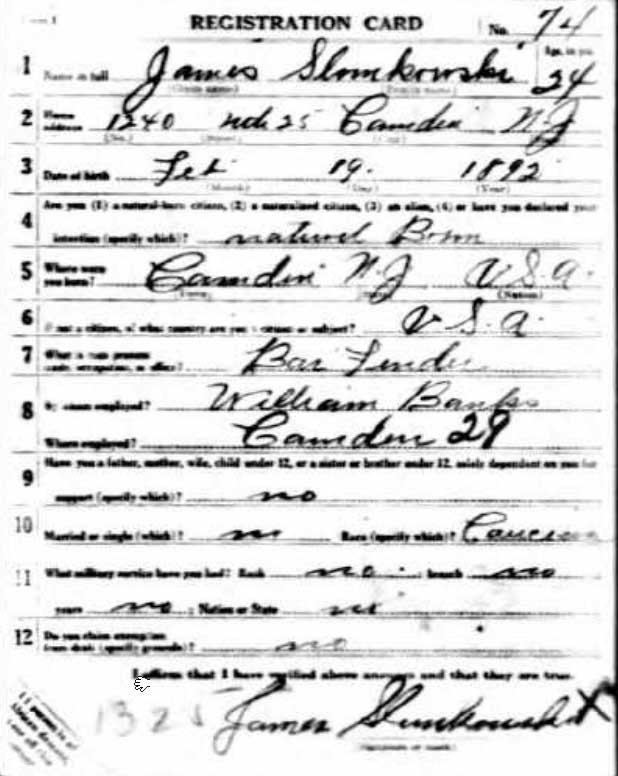 REGISTRATION CARD No. 74
1 Name in full James Slomkowski Age, in yrs. 24
(Given name) (Family name)
2 Home address 1240 Camden N.J
(No.) (Street) (City)
3 Date of birth Feb 19. 1892
(Month) (Day) (Year)
4 Are you (1) a natural-born citizen, (2) a naturalized citizen, (3) an alien, (4) or have you declared your
intention (specify which)? naturel Born
5 Where were you born? Camden N.J U.S.A.
(Town) (State) (Nation)
6 If not a citizen, of what country are you a citizen or subject? U S. A.
7 What is your present trade, occupation, or office? Bar Tender
8 By whom employed? William Banks
Where employed? Camden 29
9 Have you a father, mother, wife, child under 12, or a sister or brother under 12, solely dependent on you for
support (specify which)? no
10 Married or single (which)? no Race (specify which)?
11 What military service have you had? Rank no ; branch no
years no ; Nation or State no
12 Do you claim exemption from draft (specify grounds)? no
I affirm that I have verified above answers and that they are true.
1325 James Slumkowski X